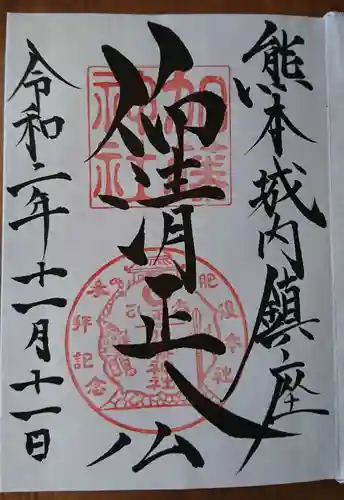 熊本城内鎮座
仰清正公
令和二年十一月十一日
加藤神社
肥後本社
参拝記念